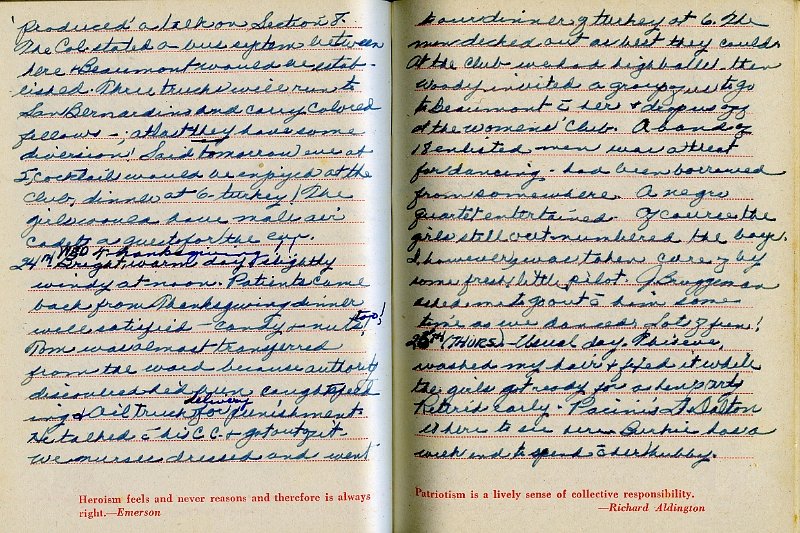 produced a talk on Section 8.
The Col. stated a bus system between
here & Beaumont would be estab-
lished. Three trucks will run to
San Bernardino and carry colored
fellows -, at last they have some
diversion! Said tomorrow eve at
5, cocktails would be enjoyed at the
Club, dinner at 6 - turkey! The
girls would have male air
Cadets as guest for the eve.
24th WED Thanksgiving!!
Bright, warm day, slightly
windy at noon. Patients came
back from Thanksgiving dinner
well satisfied - candy & nuts too!
Tom was almost transferred
from the ward because authority
discovered he'd been caught speed
ing & Oil truck delivery for punishment.
He talked c̄ his C.C. & got out of it
We nurses dressed and went
to our dinner of turkey at 6. The
men decked out as best they could.
At the club we had highballs. then
Woody invited a group of us to go
to Beaumont c̄ her & drop us off
at the womens' Club. A band of
18 enlisted men was a treat
for dancing - had been borrowed
from somewhere. A negro
quartet entertained. Of course the
girls still out-numbered the boys.
I however, was taken care of by
some fresh little pilot. J Bruggeman
asked me to go out c̄ him some
time as we danced. Lots of fun!
25th (THURS) - Usual day. This eve,
washed my hair & fixed it while
the girls got ready for a hen party
Retired early. Pacini's Lt. Dalton
is here to see her. Burkie has a
week end to spend c̄ her hubby.
Heroism feels and never reasons and therefore is always
right.—Emerson
Patriotism is a lively sense of collective responsibility.
—Richard Aldington